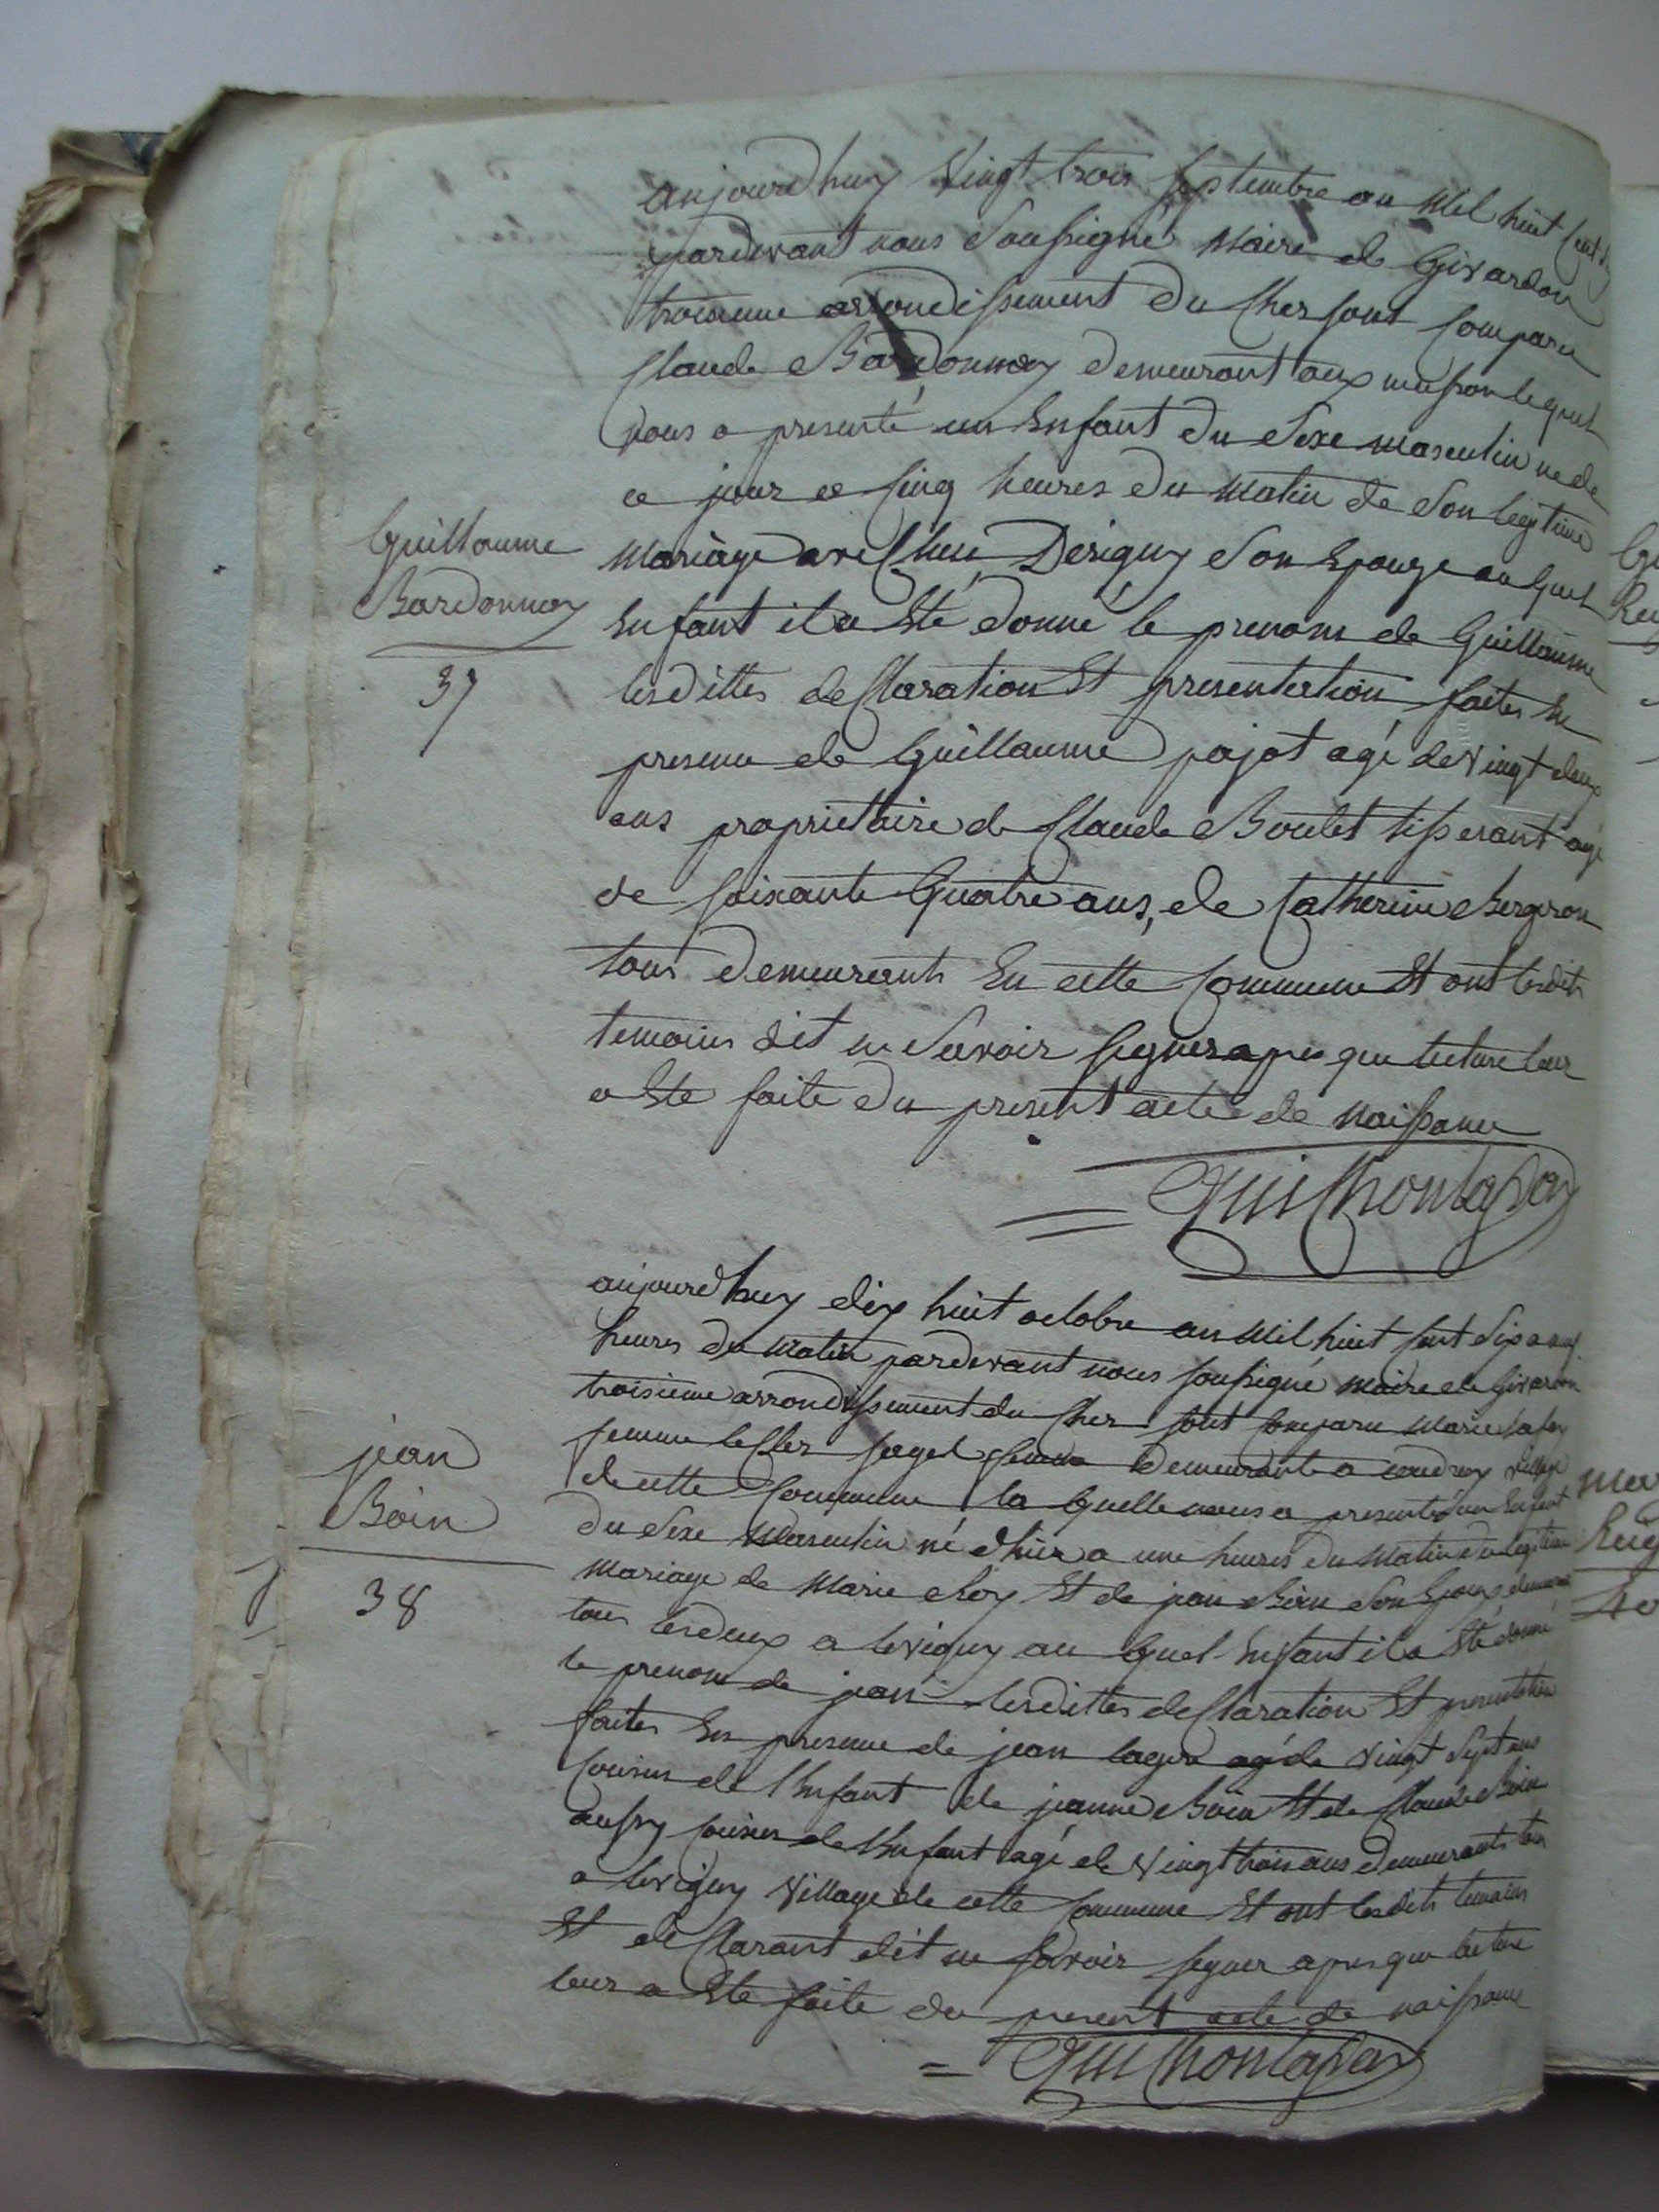 aujourd huy vingt trois septembre an mil huit cent
pardevant nous soussigné maire de Givardon
troisieme arrondissement du Cher sont comparu
Claude Bardonnay demeurant aux lequel
nous a presenté un Enfant du sexe masculin né de
ce jour a cinq heures du matin de son legitime
mariage avec Desiguy son Epouze auquel
Enfant il a Eté donné le prenom de Guillaume
lesdittes declaration Et presentation faites En
presence de Guillaume pajot agé de vingt deux
ans proprietaire de Claude Boulet tisserant agé
de soixante Quatre ans, de Catherine Bergeron
tous demeurants En cette Commune Et ont lesdits
temoins dit ne savoir signer apres que lecture leur
a Ete faite du present acte de naissance
Guillaume
Bardonnay
37
aujourd huy dix huit octobre an mil huit cent dix a
heures du matin pardevant nous soussigné maire de Givardon
troisieme arrondissement du Cher sont comparu marie
femme sage femme demeurante a village
de cette Commune la quelle nous a presenté un Enfant
du sexe masculin né d'hier a une heures du matin du legitime
mariage de marie Roy Et de jean Boin son Epoux demeurant
tous les deux a Levigny au quel Enfant il a Eté donné
le prenom de jean lesdittes declaration Et presentation
faites En presence de jean agé de vingt sept ans
cousin de l'Enfant de jeanne Boin Et de Claude Boin
aussy cousin de l'Enfant agé de vingt trois ans demeurants tous
a Levigny village de cette Commune Et ont lesdits temoins
Et declarant dit ne savoir signer apres que lecture
leur a Ete faite du present acte de naissance
jean
Boin
38